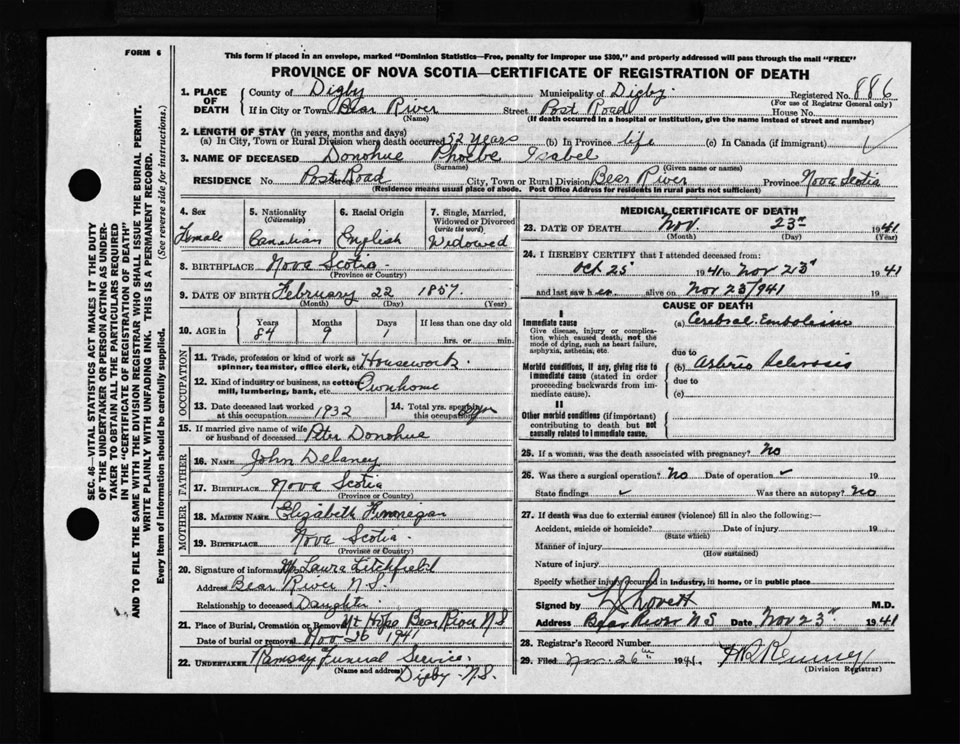 FORM 6
This form if placed in an envelope, marked "Dominion Statistics—Free, penalty for improper use $300," and properly addressed will pass through the mail "FREE"
PROVINCE OF NOVA SCOTIA—CERTIFICATE OF REGISTRATION OF DEATH
SEC. 46—VITAL STATISTICS ACT MAKES IT THE DUTY
OF THE UNDERTAKER OR PERSON ACTING AS UNDER-
TAKER TO OBTAIN ALL THE PARTICULARS REQUIRED
IN THE "CERTIFICATE OF REGISTRATION OF DEATH"
AND TO FILE THE SAME WITH THE DIVISION REGISTRAR WHO SHALL ISSUE THE BURIAL PERMIT.
WRITE PLAINLY WITH UNFADING INK. THIS IS A PERMANENT RECORD.
Every item of information should be carefully supplied. (See reverse side for instructions.)
1. PLACE OF DEATH
County of Digby Municipality of Digby. Registered No. 886
(For use of Registrar General only)
If in City or Town Bear River Street Post Road House No.
(Name) (If death occurred in a hospital or institution, give the name instead of street and number)
2. LENGTH OF STAY (in years, months and days)
(a) In City, Town or Rural Division where death occurred 52 years (b) In Province life (c) In Canada (if immigrant)
3. NAME OF DECEASED Donohue Phoebe Isabel
(Surname) (Given name or names)
RESIDENCE No. Post Road Street City, Town or Rural Division Bear River Province Nova Scotia
(Residence means usual place of abode. Post Office Address for residents in rural parts not sufficient)
4. Sex
Female
5. Nationality
(Citizenship)
Canadian
6. Racial Origin
English
7. Single, Married,
Widowed or Divorced
(write the word)
Widowed
8. BIRTHPLACE Nova Scotia.
(Province or Country)
9. DATE OF BIRTH February 22 1857.
(Month) (Day) (Year)
10. AGE in
Years Months Days If less than one day old
84 9 1 hrs. or min.
OCCUPATION
11. Trade, profession or kind of work as spinner, teamster, office clerk, etc. Housework.
12. Kind of industry or business, as cotton mill, lumbering, bank, etc. Own home
13. Date deceased last worked at this occupation 1932
14. Total yrs. spent in this occupation
15. If married give name of wife or husband of deceased Peter Donohue
FATHER
16. NAME John Delaney
17. BIRTHPLACE Nova Scotia
(Province or Country)
MOTHER
18. MAIDEN NAME Elizabeth Finnegan
19. BIRTHPLACE Nova Scotia.
(Province or Country)
20. Signature of informant Laura Litchfield
Address Bear River N.S.
Relationship to deceased Daughter
21. Place of Burial, Cremation or Removal Mt Hope Bear River N.S
Date of burial or removal Nov 26 1941
22. UNDERTAKER Ramsay Funeral Service.
(Name and address) Digby N.S.
MEDICAL CERTIFICATE OF DEATH
23. DATE OF DEATH Nov. 23rd 1941
(Month) (Day) (Year)
24. I HEREBY CERTIFY that I attended deceased from:
Oct 25 1941 to Nov 23rd 1941
and last saw her alive on Nov 23/941 19
CAUSE OF DEATH
I
Immediate cause
Give disease, injury or complica-
tion which caused death, not the
mode of dying, such as heart failure,
asphyxia, asthenia, etc.
(a) Cerebral Embolism
due to
Morbid conditions, if any, giving rise to
immediate cause (stated in order
proceeding backwards from im-
mediate cause).
Arterio Sclerosis
due to
(c)
II
Other morbid conditions (if important)
contributing to death but not
causally related to immediate cause.
25. If a woman, was the death associated with pregnancy? No
26. Was there a surgical operation? No Date of operation 19
State findings Was there an autopsy? No
27. If death was due to external causes (violence) fill in also the following:—
Accident, suicide or homicide? Date of injury 19
(State which)
Manner of injury
(How sustained)
Nature of injury
Specify whether injury occurred in industry, in home, or in public place
Signed by Lovett M.D.
Address Bear River N S Date Nov 23rd 1941
28. Registrar's Record Number
29. Filed Nov. 26th 1941
(Division Registrar)